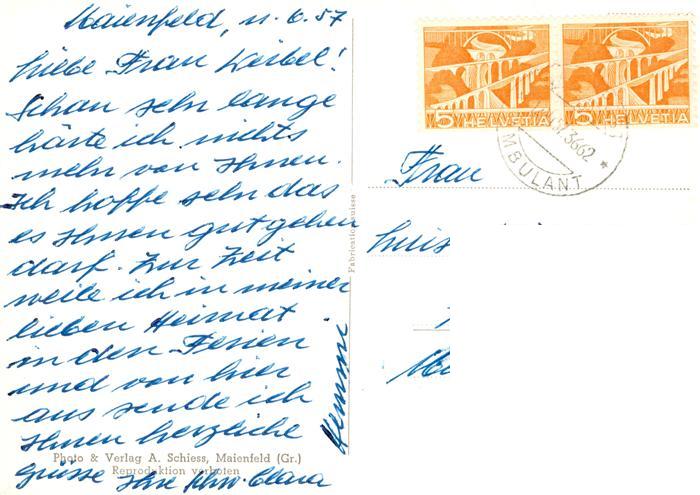 Maienfeld, 11.6.57
Liebe Frau Weibel!
Schon sehr lange
hörte ich nichts
mehr von Ihnen.
Ich hoffe sehr das
es Ihnen gut gehen
darf. Zur Zeit
weile ich in meiner
lieben Heimat
in den Ferien
und von hier
aus sende ich
Ihnen herzliche
Grüsse Ihre Schw. Clara
Hemmi
Photo & Verlag A. Schiess, Maienfeld (Gr.)
Reproduktion verboten
Fabrication suisse
5 HELVETIA
5 HELVETIA
3662 *
AMBULANT
Frau
Luis